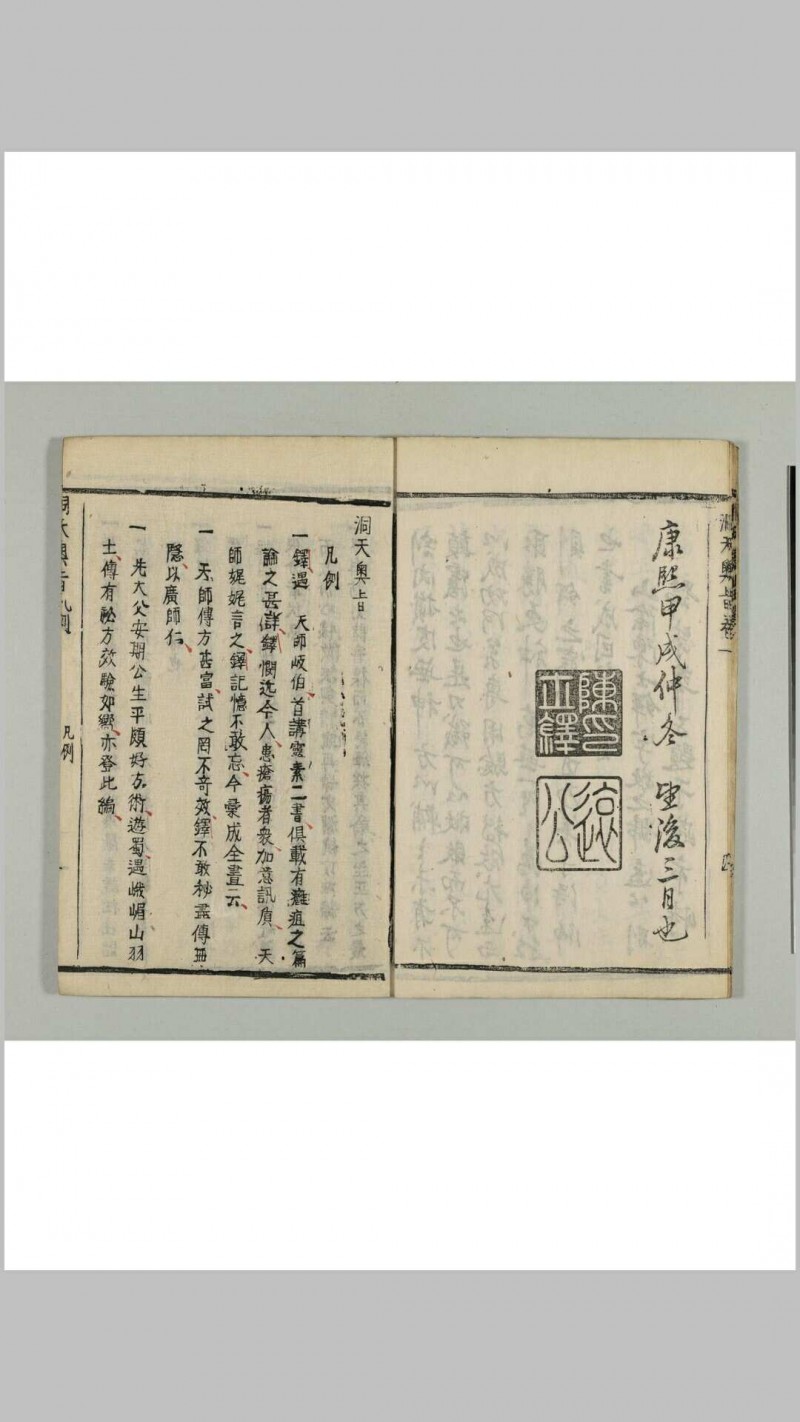 洞天奧旨卷一
康熙甲戌仲冬 望後三日也
陳印
士鐸
遠
公
洞天奧旨
凡例
一鐸遇 天師岐伯首講靈素二書俱載有癰疽之篇
論之甚詳鐸憫迩今人患瘡瘍者衆加意訊質 天
師娓娓言之鐸記憶不敢忘今彙成全書云
一 天師傳方甚富試之罔不奇效鐸不敢秘盡傳毋
隱以廣師仁
一 先大父安期公生平頗好方術遊蜀遇峨嵋山羽
士傳有祕方效驗如響亦登此編
洞天奧旨凡例
凡例